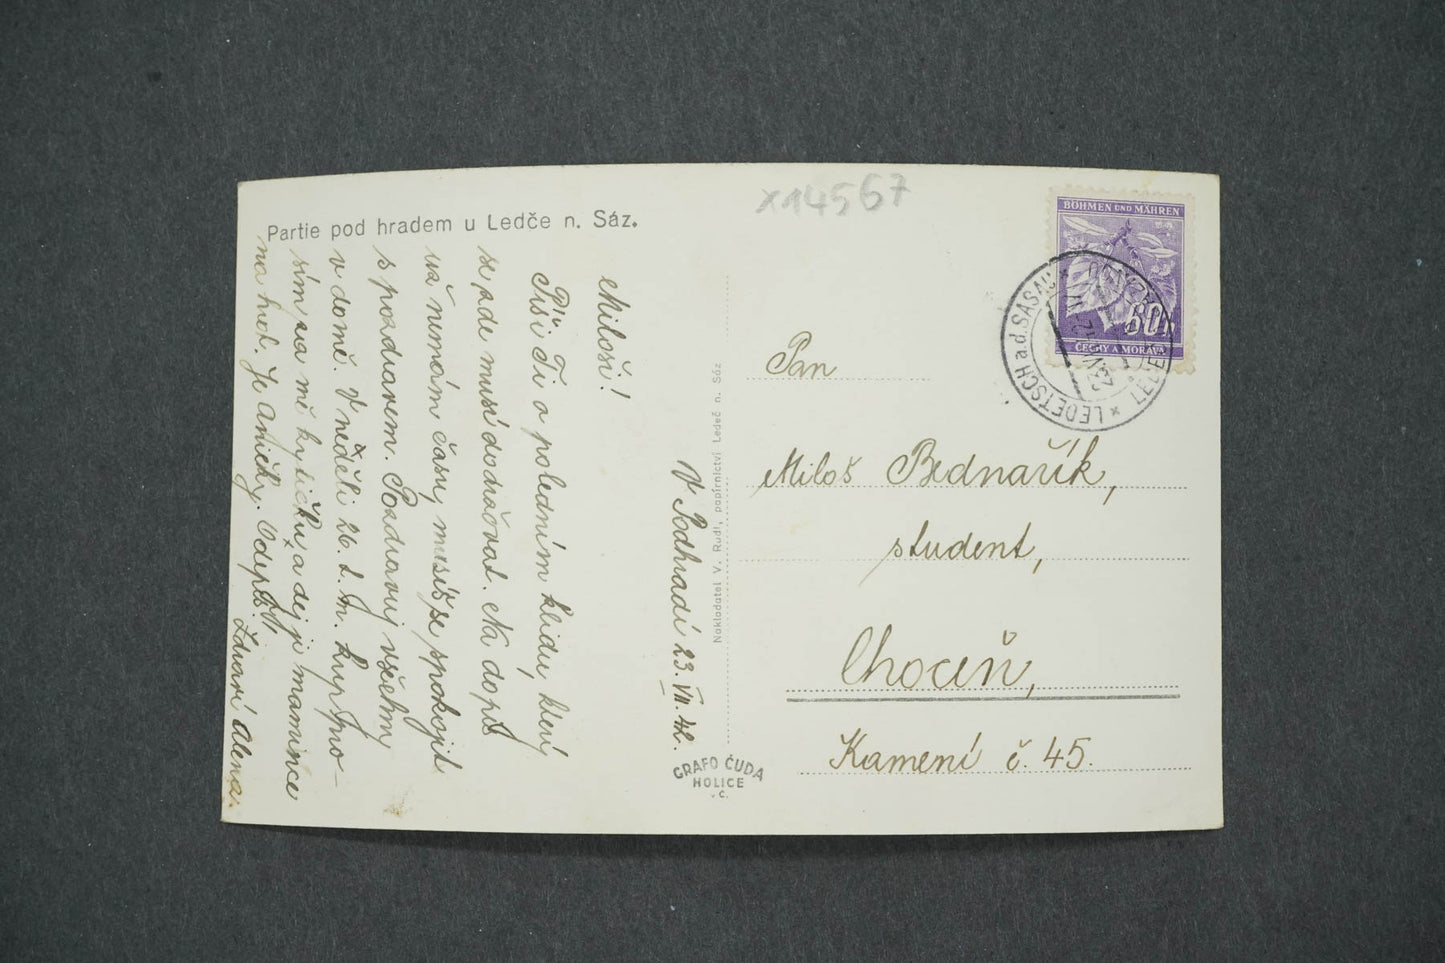 x14567
Partie pod hradem u Ledče n. Sáz.
V Podhradí 23. VII. 42.
Miloši!
Píši Ti o poledním klidu, který
se zde musí dodržovat. Na dopis
už nemám času, musíš se spokojit
s pozdravem. Pozdravuj všechny
v domě. V neděli 26. t. m. kup jmé-
sím za mě kytičku a dej ji mamince
na hrob. Je Aničky. Odepiš!
Zdraví Alena.
Nakladatel V. Rudl, papírnictví Ledeč n. Sáz
GRAFO ČUDA
HOLICE
v Č.
BÖHMEN UND MÄHREN
60
ČECHY A MORAVA
LEDETSCH a.d. SASAU
23. VII 42
Pan
Miloš Bednařík,
student,
Choceň,
Kamení č. 45.